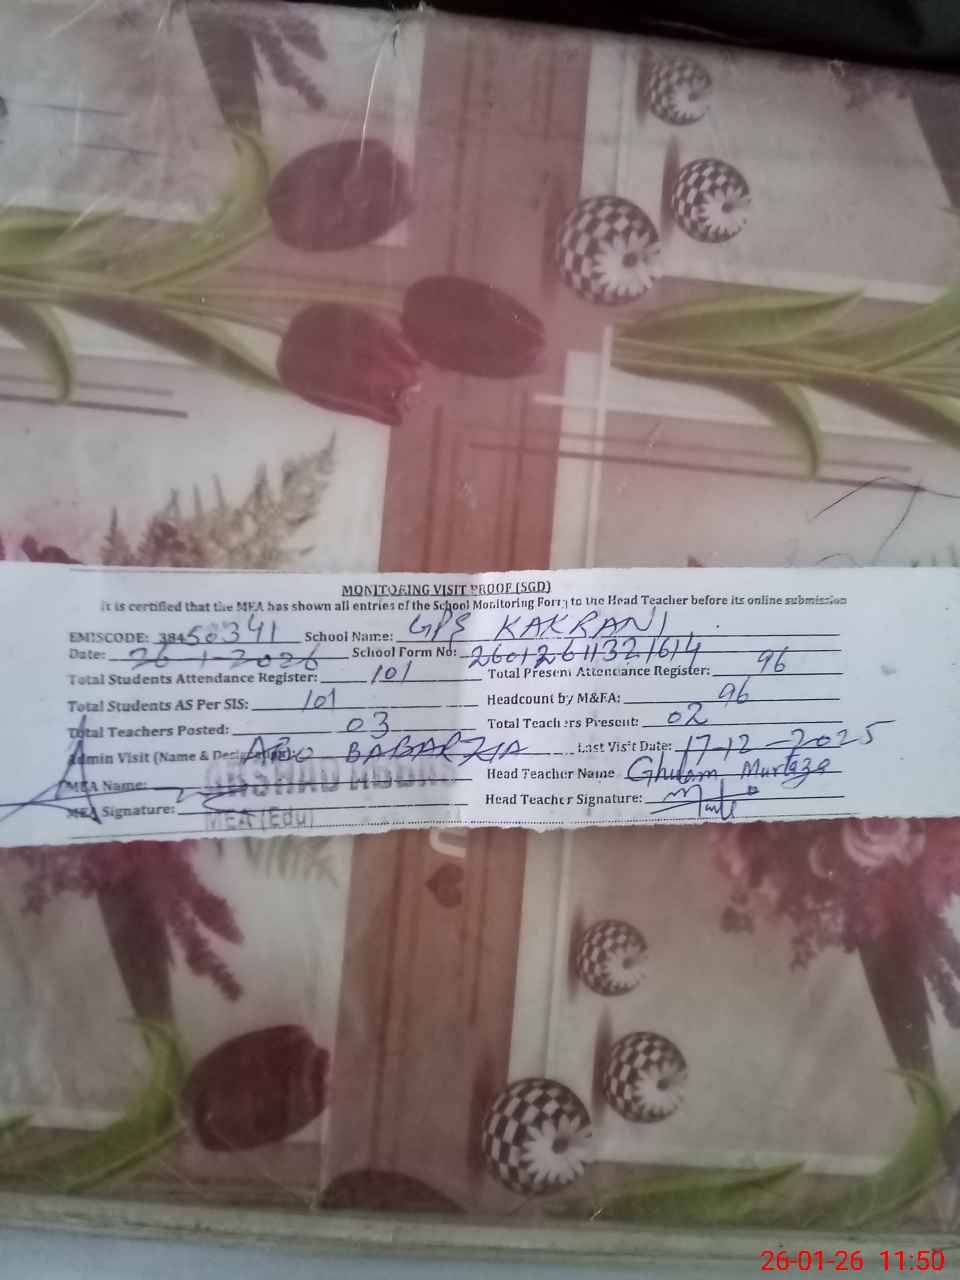 MONITORING VISIT PROOF (SGD)
It is certified that the MEA has shown all entries of the School Monitoring Form to the Head Teacher before its online submission
EMISCODE: 38450341 School Name: GPS KAKRANI
Date: 26-1-2026 School Form No: 2601261132 1614
Total Students Attendance Register: 101 Total Present Attendance Register: 96
Total Students AS Per SIS: 101 Headcount by M&EA: 96
Total Teachers Posted: 03 Total Teachers Present: 02
Admin Visit (Name & Designation): BABAR ZIA Last Visit Date: 17-12-2025
MEA Name: Head Teacher Name Ghulam Murtaza
MEA Signature: MEA (Edu) Head Teacher Signature:
26-01-26 11:50